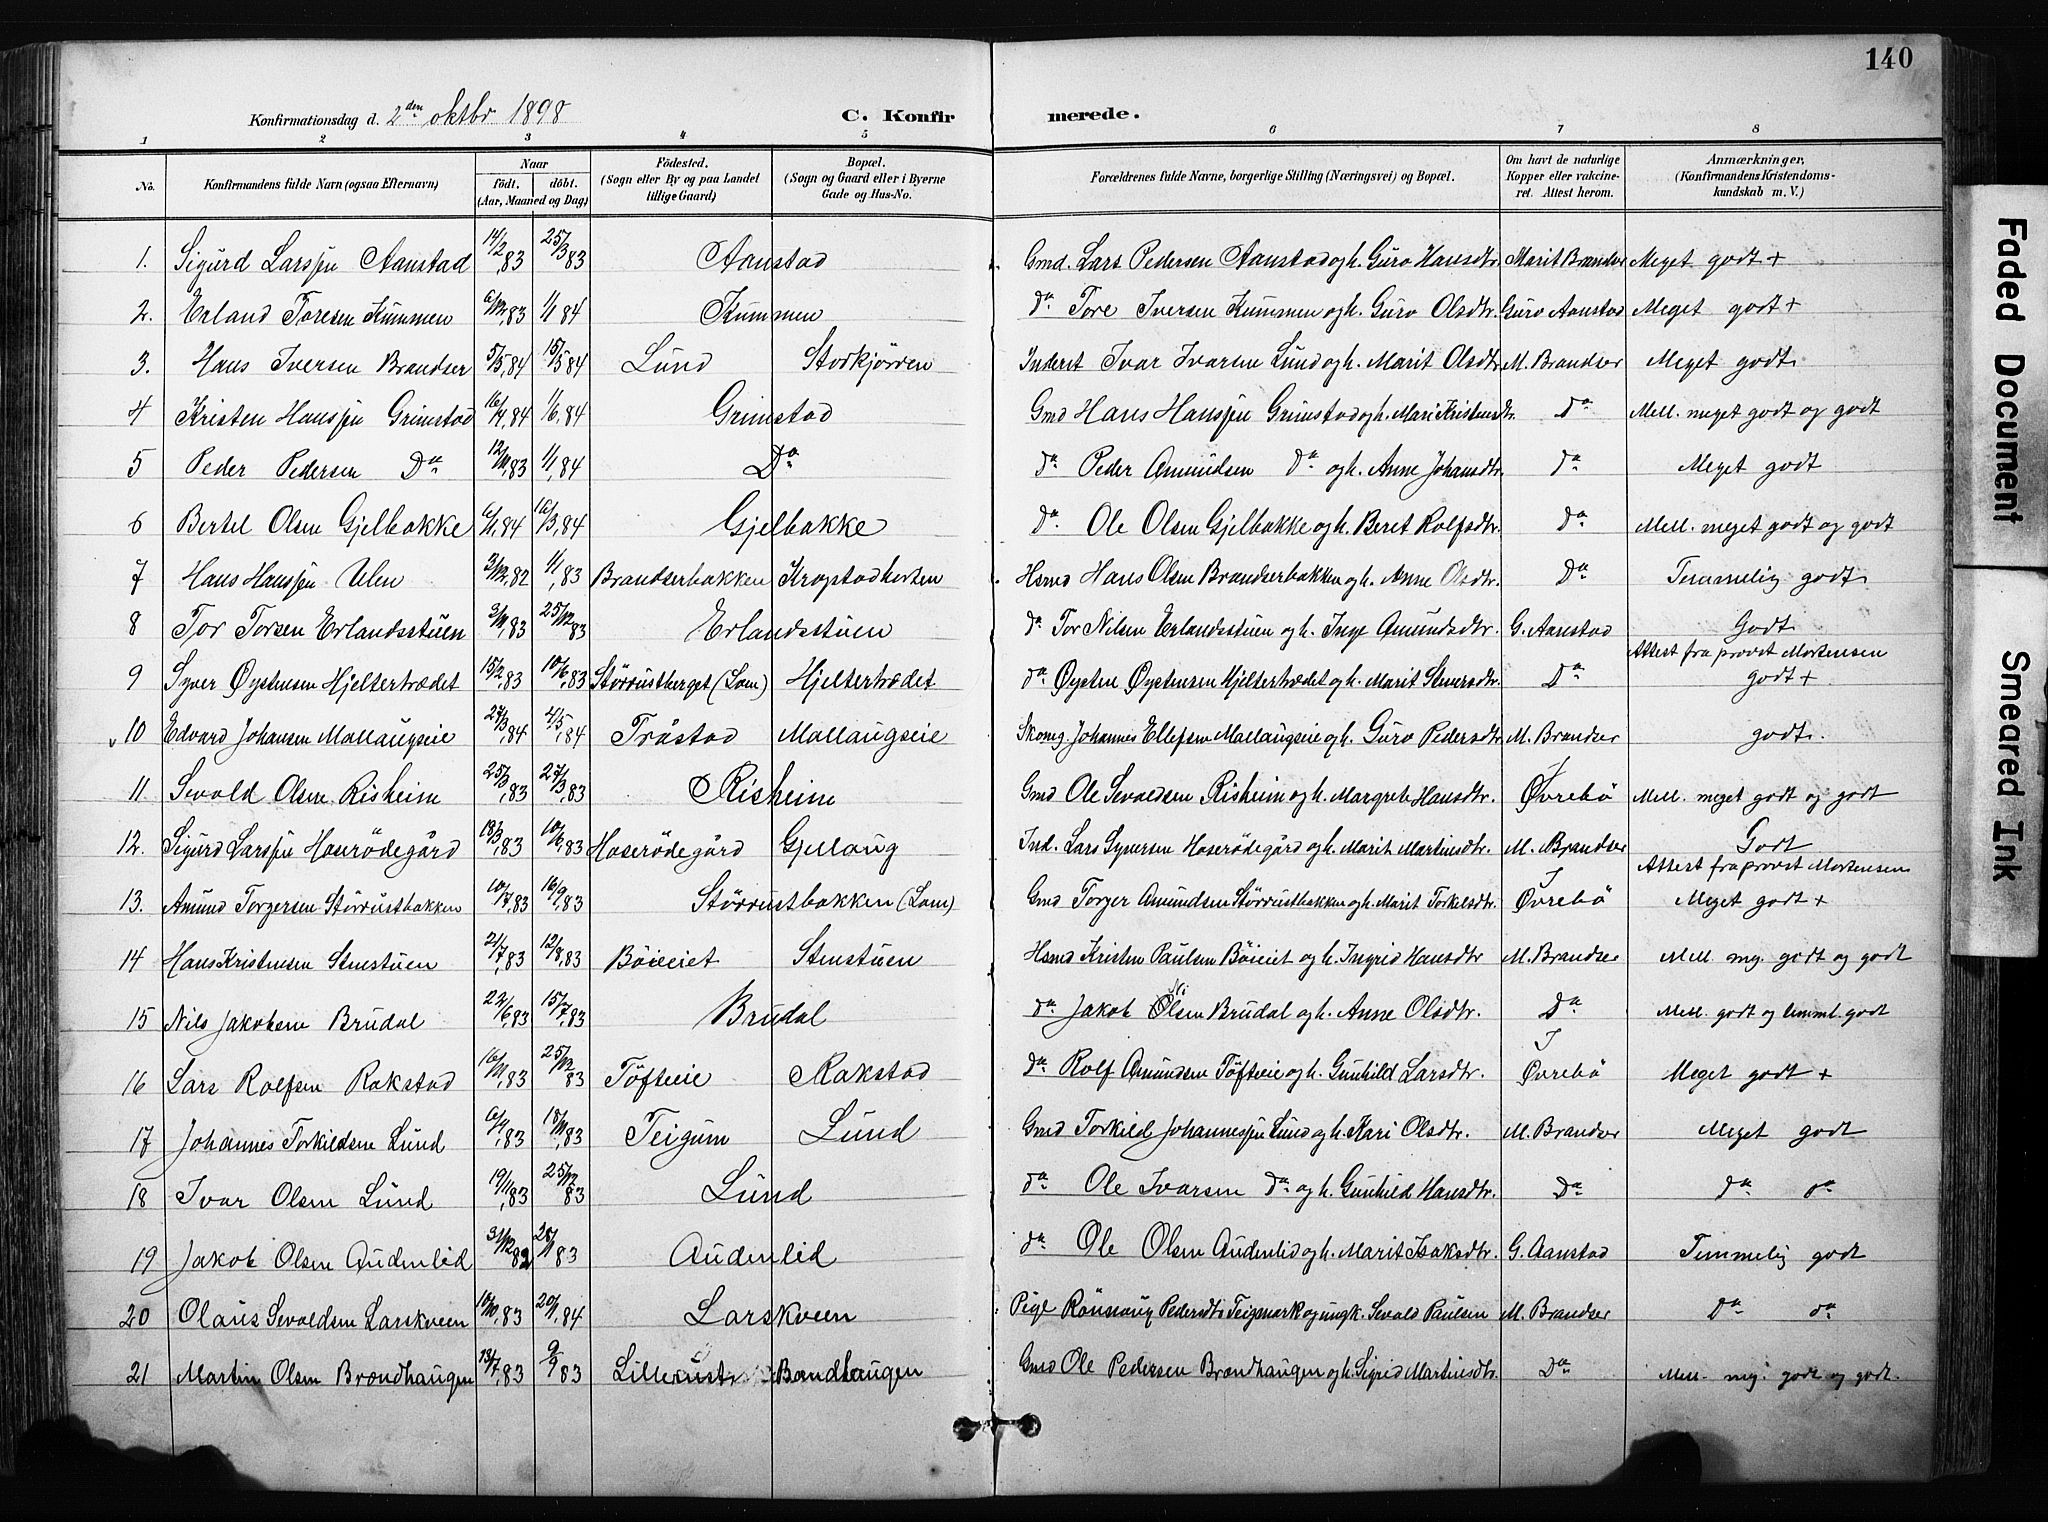 140
Konfirmationsdag d. 2den oktbr 1898 C. Konfirmerede.
1 2 3 4 5 6 7 8
No. Konfirmandens fulde Navn (ogsaa Efternavn) Naar födt. döbt. (Aar, Maaned og Dag) Födested. (Sogn eller By og paa Landet tillige Gaard) Bopæl. (Sogn og Gaard eller i Byerne Gade og Hus-No. Forældrenes fulde Navne, borgerlige Stilling (Næringsvei) og Bopæl. Om havt de naturlige Kopper eller vakcineret. Attest herom. Anmærkninger, (Konfirmandens Kristendomskundskab m. V.)
1. Sigurd Larssen Aanstad 14/2,83 25/3 83 Aanstad Gmd. Lars Pedersen Aanstad og h. Guro Hansdtr. Marit Brandser Meget godt +
2. Erland Toresen Kummen 6/12,83 1/1 84 Kummen da Tore Iversen Kummen og h. Guro Olsdtr. Guro Aanstad Meget godt +
3. Hans Iversen Brandser 5/5,84 15/5 84 Lund Storkjörren Inderst Ivar Ivarsen Lund og h. Marit Olsdtr. M. Brandser Meget godt
4 Kristen Hanssen Grimstad 16/4,84 1/6,84 Grimstad Gmd Hans Hanssen Grimstad og h. Mari Kristensdtr. da Mell. meget godt og godt
5 Peder Pedersen Da 12/11,83 1/1,84 Da da Peder Amundsen da og h. Anne Johansdtr. da Meget godt
6 Bertel Olsen Gjelbakke 6/1,84 16/3,84 Gjelbakke da Ole Olsen Gjelbakke og h. Beret Rolfsdtr. da Mell. meget godt og godt
7 Hans Hanssen Ulen 3/12,82 1/1,83 Brandserbakken Kropstadkorten Hsmd Hans Olsen Brandserbakken og h. Anne Olsdtr. Da Temmelig godt
8 Tor Torsen Erlandsstuen 3/11,83 25/12 83 Erlandsstuen da Tor Nilsen Erlandsstuen og h. Inge Amundsdtr. G. Aanstad Godt
9 Syver Øystensen Hjeltertrædet 15/2,83 10/6,83 Störrustberget (Lom) Hjeltertrædet da Øysten Øystensen Hjeltertrædet og h. Marit Syversdtr. Da Attest fra provst Mortensen godt +
10 Edvard Johansen Mallaugseie 27/3,84 4/5,84 Tråstad Mallaugseie Skomg. Johannes Ellefsen Mallaugseie og h. Guro Pedersdtr M. Brandser godt.
11 Sevald Olsen Risheim 25/3,83 27/3,83 Risheim Gmd Ole Sevaldsen Risheim og h. Margrete Hansdtr. Øvrebö Mell. meget godt og godt
12. Sigurd Larssen Haserödegård 18/3,83 10/6,83 Haserödegård Gjellaug Ind. Lars Syversen Haserödegård og h. Marit Martinsdtr. M. Brandser Godt
13. Amund Torgersen Störrustbakken 10/7,83 16/9,83 Störrustbakken (Lom) Gmd Torger Amundsen Störrustbakken og h. Marit Torkelsdtr. Øvrebö Attest fra provst Mortensen Meget godt +
14 Hans Kristensen Stenstuen 21/7,83 12/8,83 Böieiet Stenstuen Hsmd Kristen Paulsen Böieiet og h. Ingrid Hansdtr M. Brandser Mell. mg. godt og godt
15 Nils Jakobsen Brudal 24/6,83 15/7,83 Brudal da Jakob Olsen Brudal og h. Anne Olsdtr. Da Mell. godt og temml. godt
16 Lars Rolfsen Rakstad 16/11,83 25/12 83 Töfteeie Rakstad da Rolf Amundsen Töfteeie og h. Gunhild Larsdtr. Øvrebö Meget godt +
17 Johannes Torkildsen Lund 6/9,83 18/11,83 Teigum Lund Gmd Torkild Johannessen Lund og h. Kari Olsdtr. M. Brandser Meget godt
18 Ivar Olsen Lund 19/11,83 25/12 83 Lund da Ole Ivarsen da og h. Gunhild Hansdtr. Da da da
19 Jakob Olsen Audenlid 31/12 82 28/1 83 Audenlid da Ole Olsen Audenlid og h. Marit Isaksdtr. G. Aanstad Temmelig godt
20 Olaus Sevaldsen Larskveen 10/10,83 20/1,84 Larskveen Pige Rönnaug Pedersdtr Teigmark og ungk. Sevald Paulsen M. Brandser Da da
21 Martin Olsen Brændhaugen 13/7,83 9/9 83 Lillerust Brændhaugen Gmd Ole Pedersen Brændhaugen og h. Sigrid Martinsdtr. Da Mell. mg. godt og godt.
Faded Document
Smeared Ink